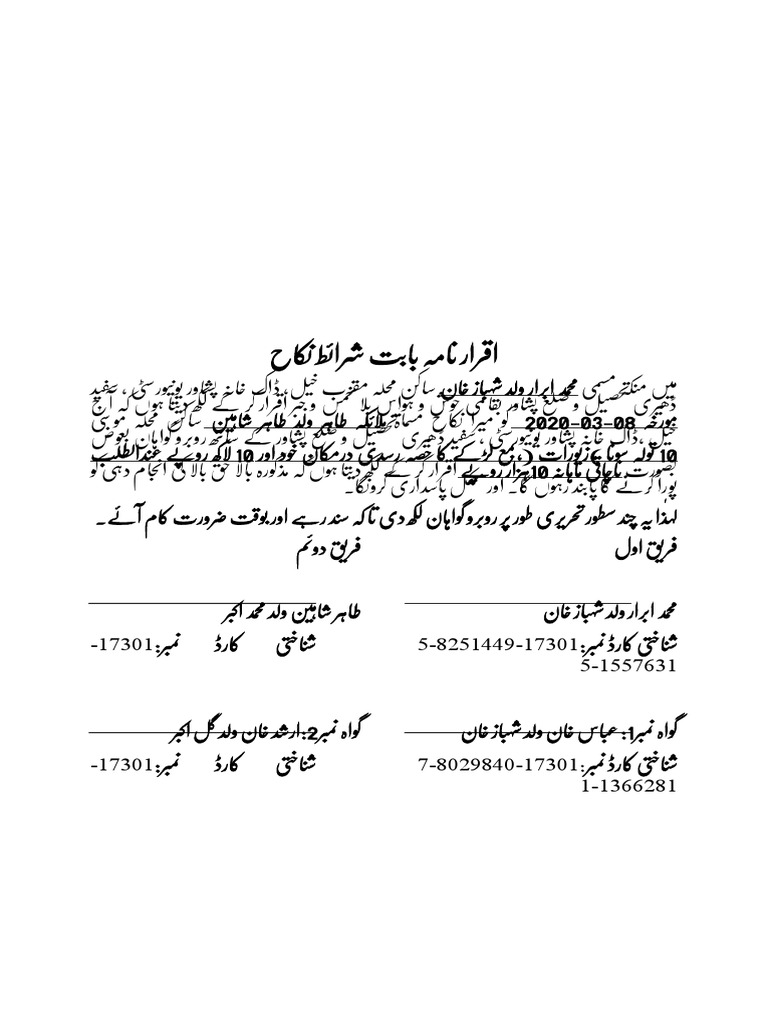 اقرار نامہ بابت شرائط نکاح
میں منکہ مسمی محمد ابرار ولد شہباز خان ساکن محلہ مقرب خیل، ڈاک خانہ پشاور یونیورسٹی، سفید
ڈھیری تحصیل و ضلع پشاور بقائمی ہوش و حواس بلا و جبر اقرار کر کے لکھ دیتا ہوں کہ آج
مورخہ 08-03-2020 کو میرا نکاح مسماۃ ملائکہ طاہر ولد طاہر شاہین ساکن محلہ
خیل، ڈاک خانہ پشاور یونیورسٹی، سفید ڈھیری تحصیل و ضلع پشاور کے ساتھ روبرو گواہان بعوض
10 تولہ سونا زیورات)، بمع لڑکے کا حصہ رسدی در مکان خود اور 10 لاکھ روپے عندالطلب
بصورت ناچاقی ماہانہ 10 ہزار روپے اقرار کر کے لکھ دیتا ہوں کہ مذکورہ بالا حق بالا کی انجام دہی کو
پورا کرنے کا پابند رہوں گا۔ اور مکمل پاسداری کرونگا۔
لہذا یہ چند سطور تحریری طور پر روبرو گواہان لکھ دی تاکہ سند رہے اور بوقت ضرورت کام آئے۔
فریق اول
محمد ابرار ولد شہباز خان
شناختی کارڈ نمبر:17301-8251449-5
فریق دوئم
طاہر شاہین ولد محمد اکبر
شناختی کارڈ نمبر:17301-
1557631-5
گواہ نمبر1: عباس خان ولد شہباز خان
شناختی کارڈ نمبر:17301-8029840-7
گواہ نمبر2: ارشد خان ولد گل اکبر
شناختی کارڈ نمبر:17301-
1366281-1